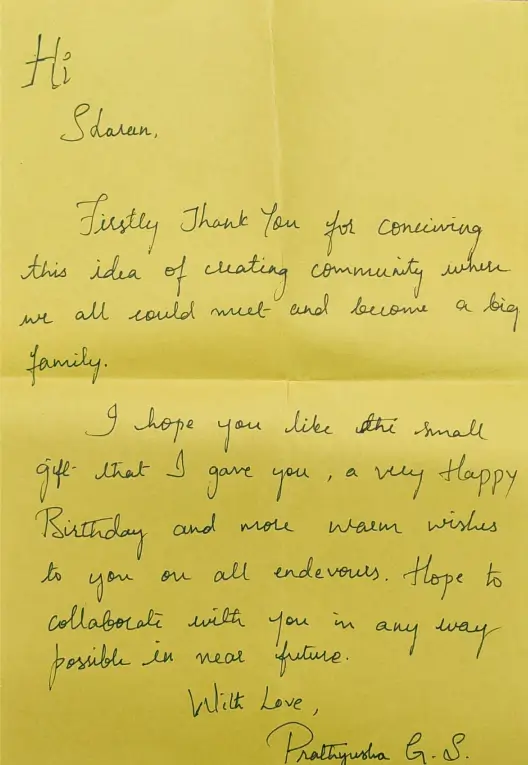 Hi
Sharan,
Firstly Thank You for conceiving
this idea of creating community where
we all could meet and become a big
family.
I hope you like the small
gift that I gave you, a very Happy
Birthday and more warm wishes
to you on all endevours. Hope to
collaborate with you in any way
possible in near future.
With Love,
Prathyusha G. S.